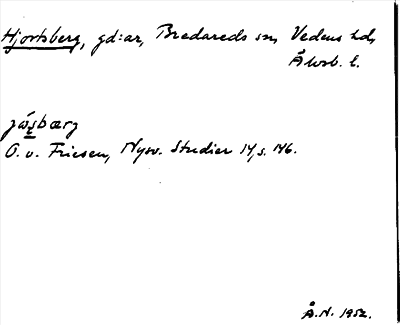 Hjortsberg, gd:ar, Bredareds sn, Vedens hd,
Älvsb. l.
jǿsbærj
O. v. Friesen, Nysv. Studier 14, s. 146.
Å.N. 1952.